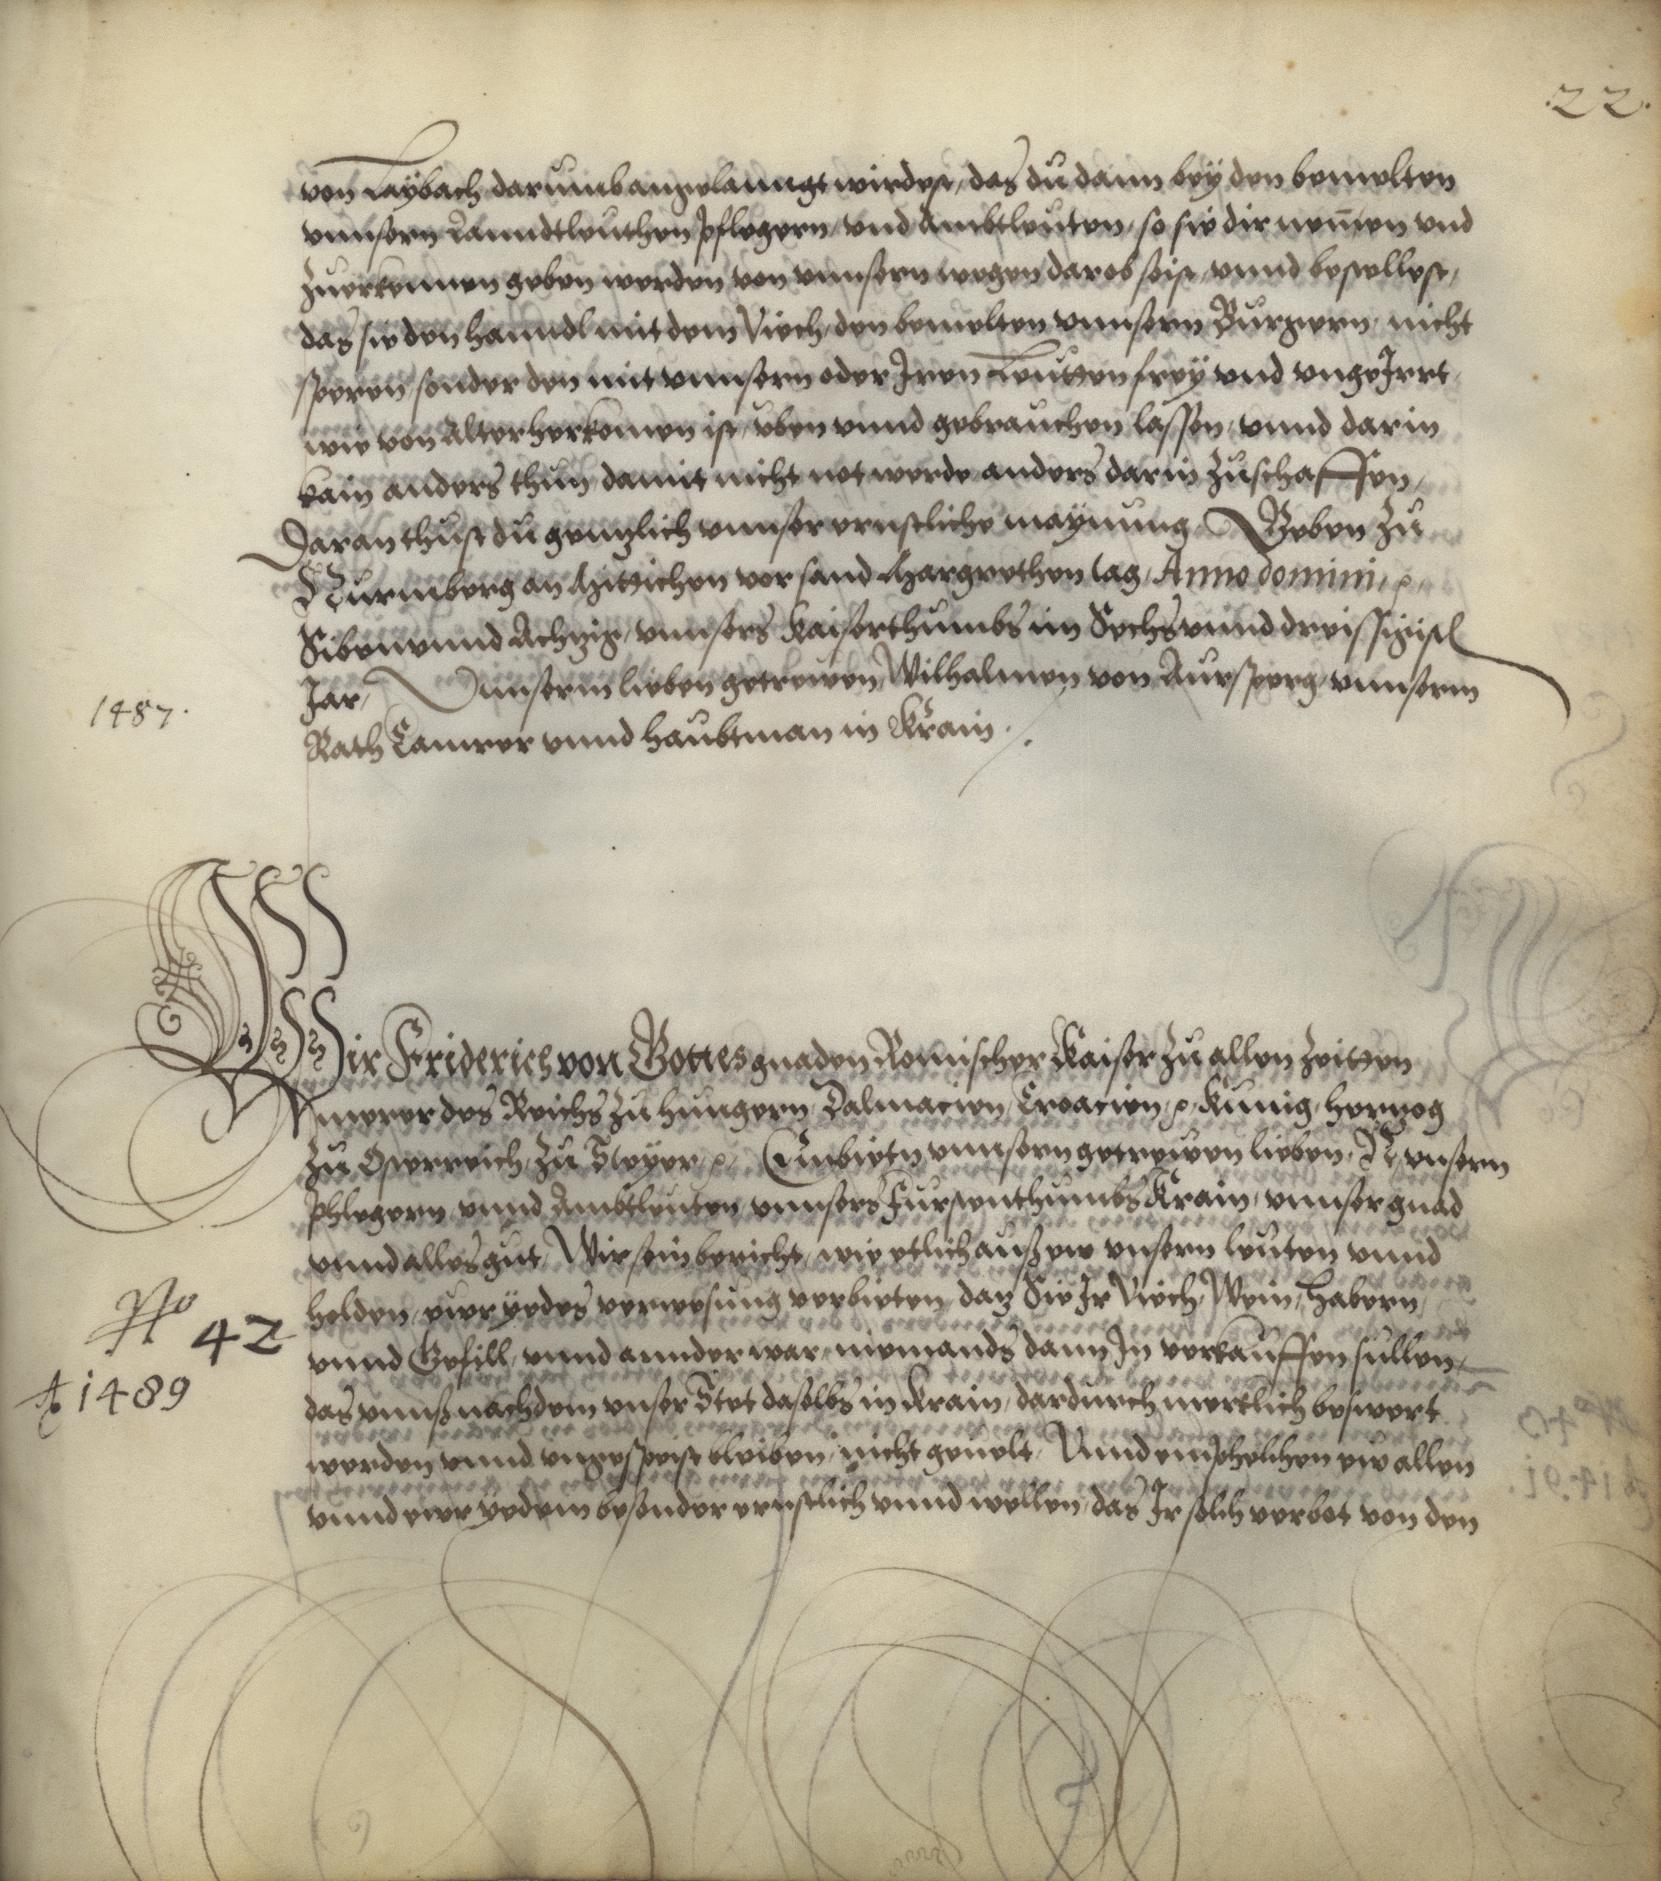 .22.
von Laybach darumb angelanngt wirdest, das du dann bey den bemelten
vnnsern Lanndtleuthen Pflegern, vnd Ambtleuten, so sie dir nem̄en vnd
Zuerkennen geben werden von vnnsern wegen darob seist, vnnd bestellest,
das sie den hanndl mit dem Viech, den bemelten vnnsern Burgern, nicht
speren, sonder den mit vnnsern oder Iren Leutten frey vnd vngeIrrt,
wie von Alter herkomen ist, vben vnnd gebrauchen lassen, vnnd darin
kain anders thun, damit nicht not werde anders darin Zuschaffen,
Daran thust du genzlich vnnser ernstliche maynung, Geben Zu
Nurmberg an Mittichen vor sand Margrethen tag, Anno domini, ꝛc.
Siben vnnd Achzig, vnnsers Kaiserthumbs im Sechs vnnd dreissigisten
Jar,
Vnnserm lieben getrewen, Wilhalmen von Aursperg, vnnserm
1487.
Rath Camrer vnnd haubtman in Krain.
Wir Friderich von Gottes gnaden Romischer Kaiser Zu allen Zeitten
merer des Reichs Zu Hungern, Dalmacien, Croacien, ꝛc. Kunig, Herzog
Zu Osterreich, Zu Steyer, ꝛc. Embietn vnnsern getrewen lieben, N. vnsern
Phlegern, vnnd Ambtleuten, vnnsers Furstenthumbs Krain, vnnser gnad
vnnd alles gut, Wir sein bericht, wie etlich auß ew vnsern leuten vnnd
holden, ewr yedes verwesung verbieten, daz Sie Ir Viech, Wein, Habern,
No 42
vnnd Gefill, vnnd annder war, niemands dann In verkauffen sullen,
A 1489
das vnnß nachdem vnser Stet daselbs in Krain, dardurch merklich beswert
werden vnnd vngespeist bleiben, nicht geuelt, Vnnd emphelhen ew allen
vnnd ewr yedem besonder ernstlich vnnd wellen, das Ir solch verbot von den